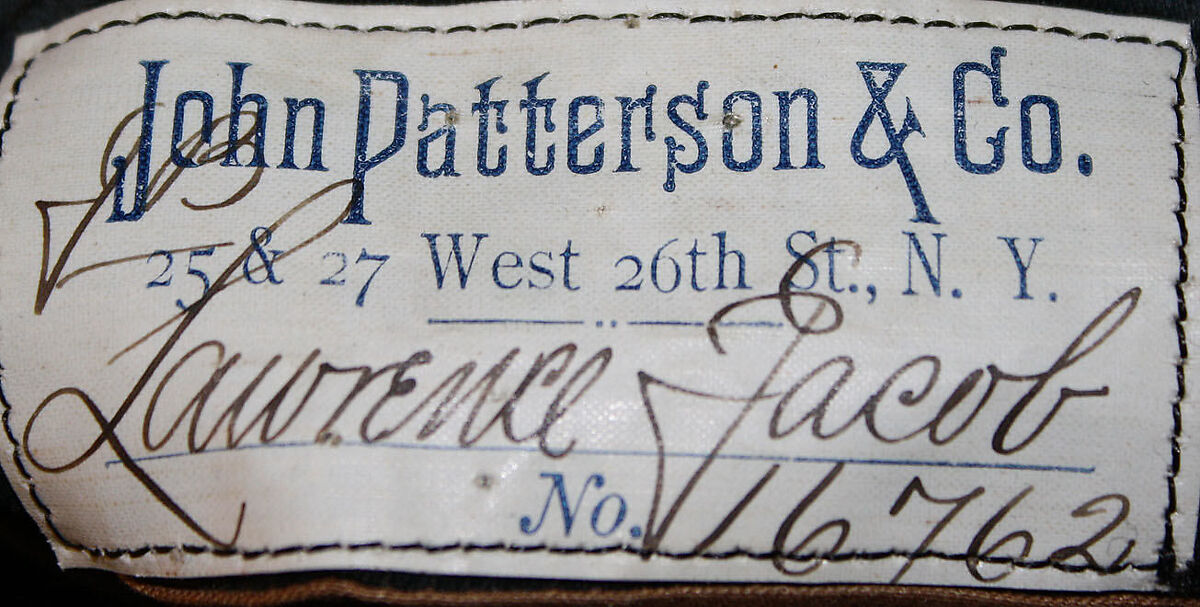 John Patterson & Co.
25 & 27 West 26th St., N. Y.
Lawrence Jacob
No. 16762